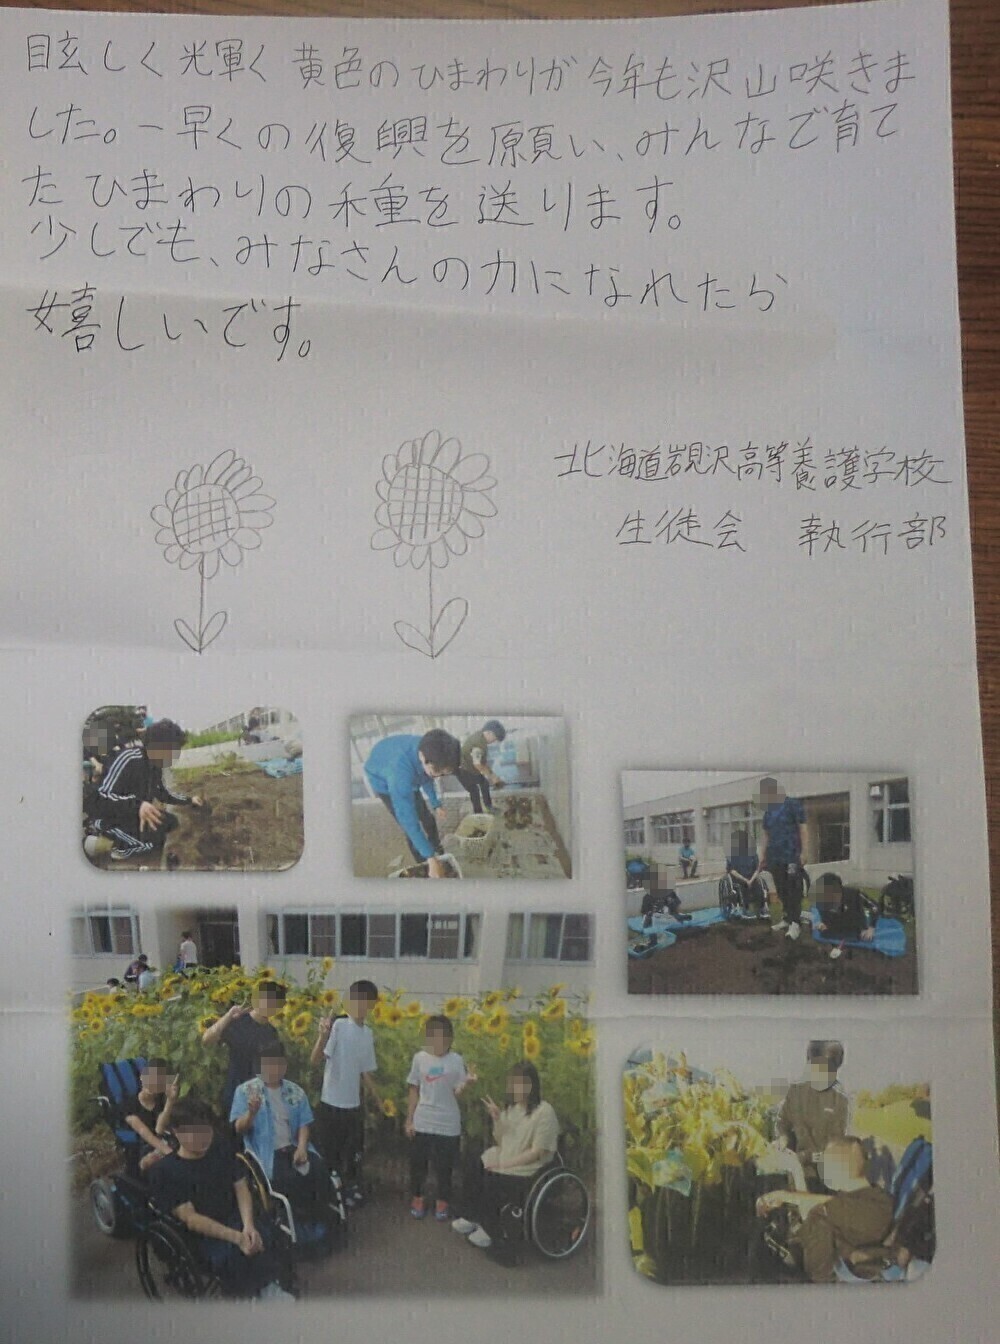 眩しく光輝く黄色のひまわりが今年も沢山咲きま
した。一早くの復興を願い、みんなで育て
たひまわりの種を送ります。
少しでも、みなさんの力になれたら
嬉しいです。
北海道岩見沢高等養護学校
生徒会 執行部